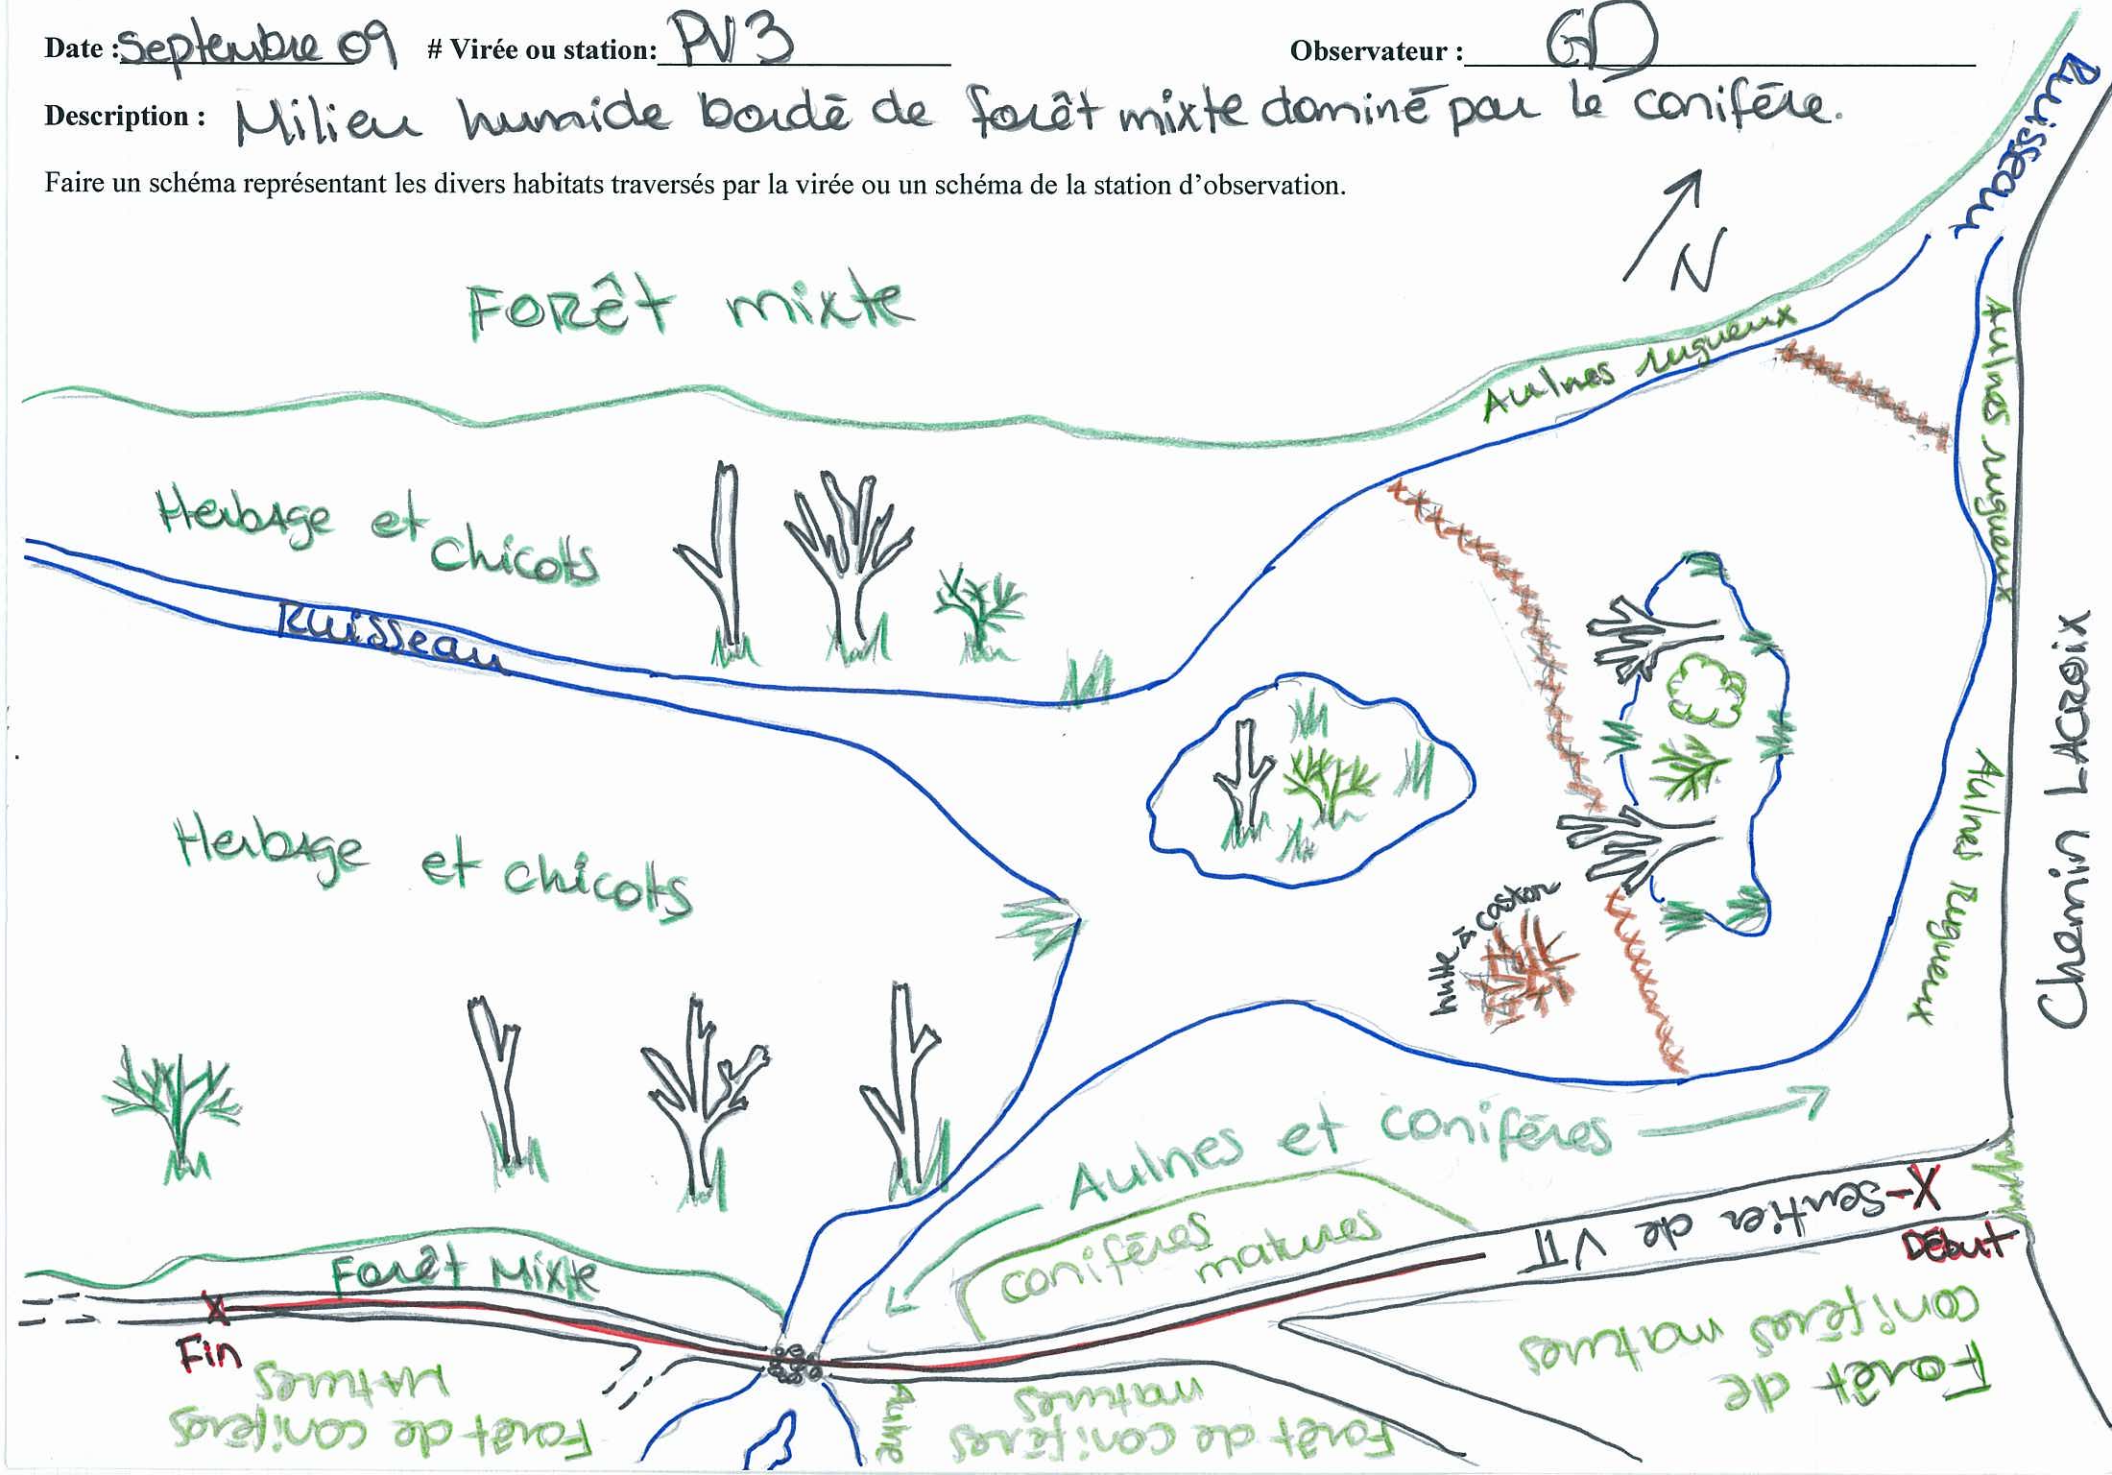 Date : Septembre 09 # Virée ou station: PV3 Observateur : GD
Description : Milieu humide bordé de forêt mixte dominé par le conifère.
Faire un schéma représentant les divers habitats traversés par la virée ou un schéma de la station d'observation.
Ruisseau
N
Forêt mixte
Aulnes rugueux
Aulnes rugueux
Herbage et chicots
Ruisseau
Chemin LACROIX
Herbage et chicots
Aulnes Rugueux
hutte à castor
Aulnes et conifères
X-Sentier de VTT
Début
conifères
matures
Forêt Mixte
X
Fin
Forêt de
conifères matures
Forêt de conifères
matures
Aulne
Forêt de conifères
matures